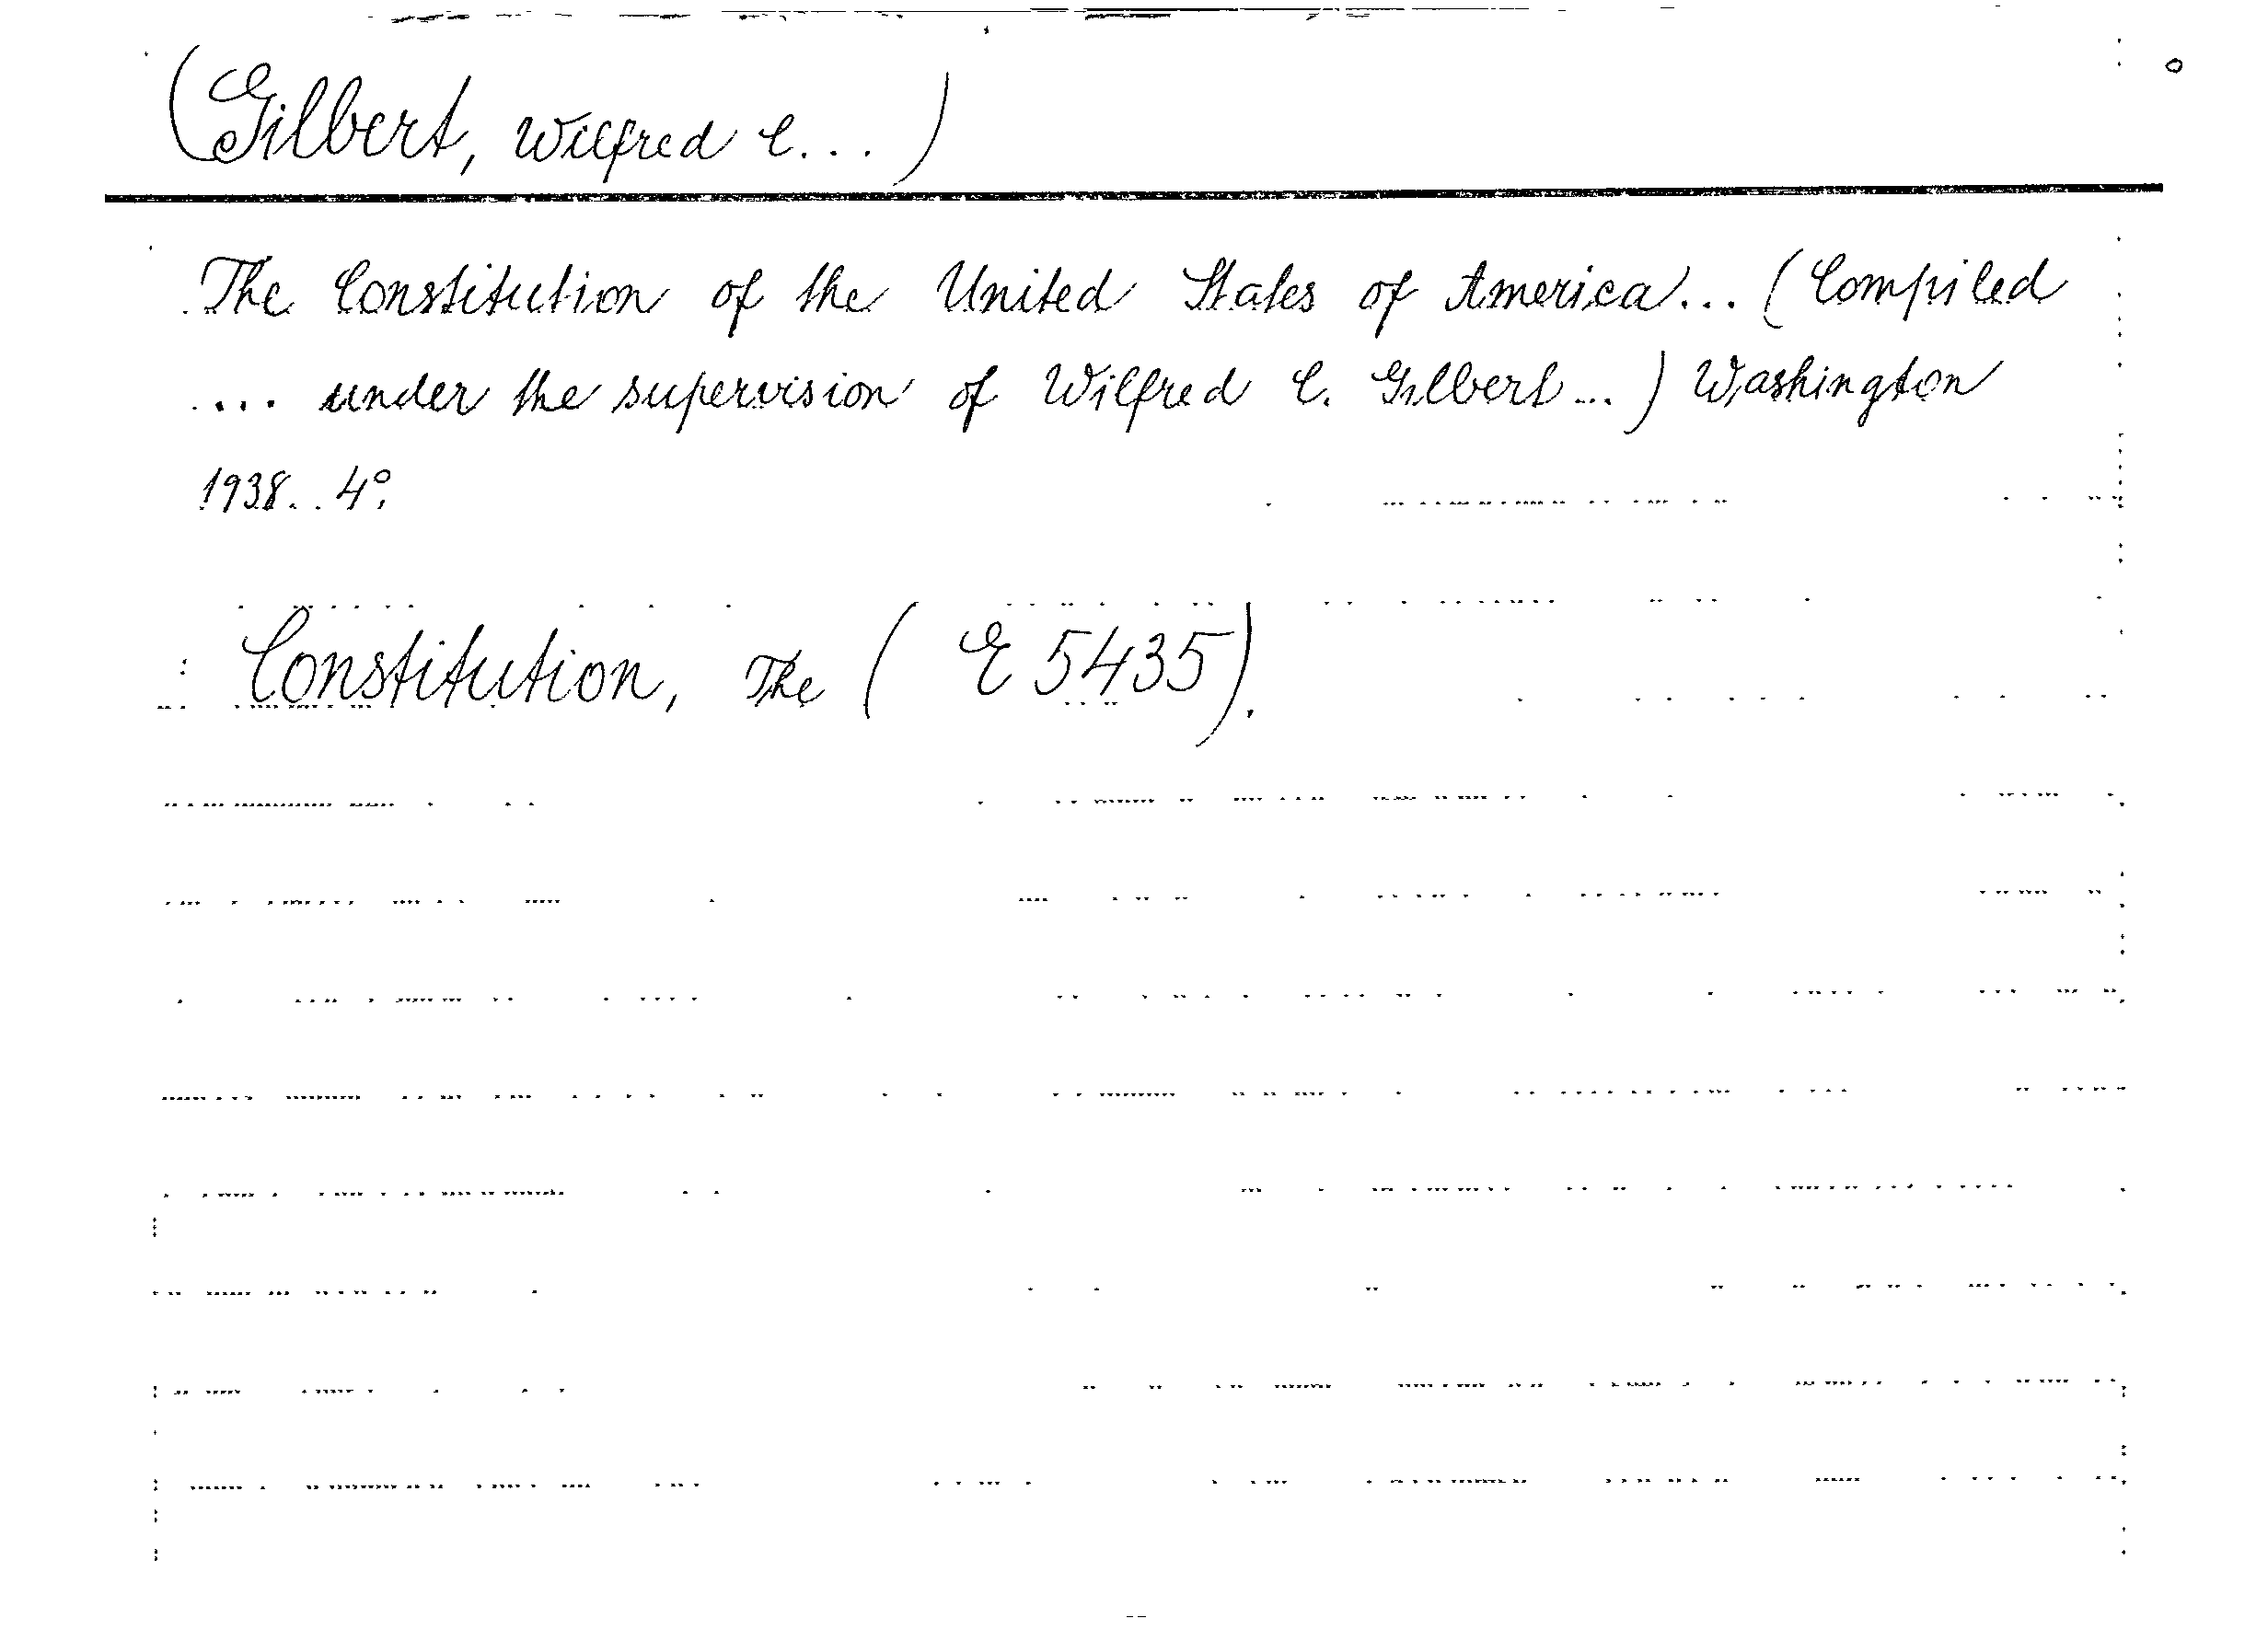 (Gilbert, Wilfred C...)
The Constitution of the United States of America... (Compiled
... under the supervision of Wilfred C. Gilbert...) Washington
1938. 4°.
Constitution, The (E 5435).